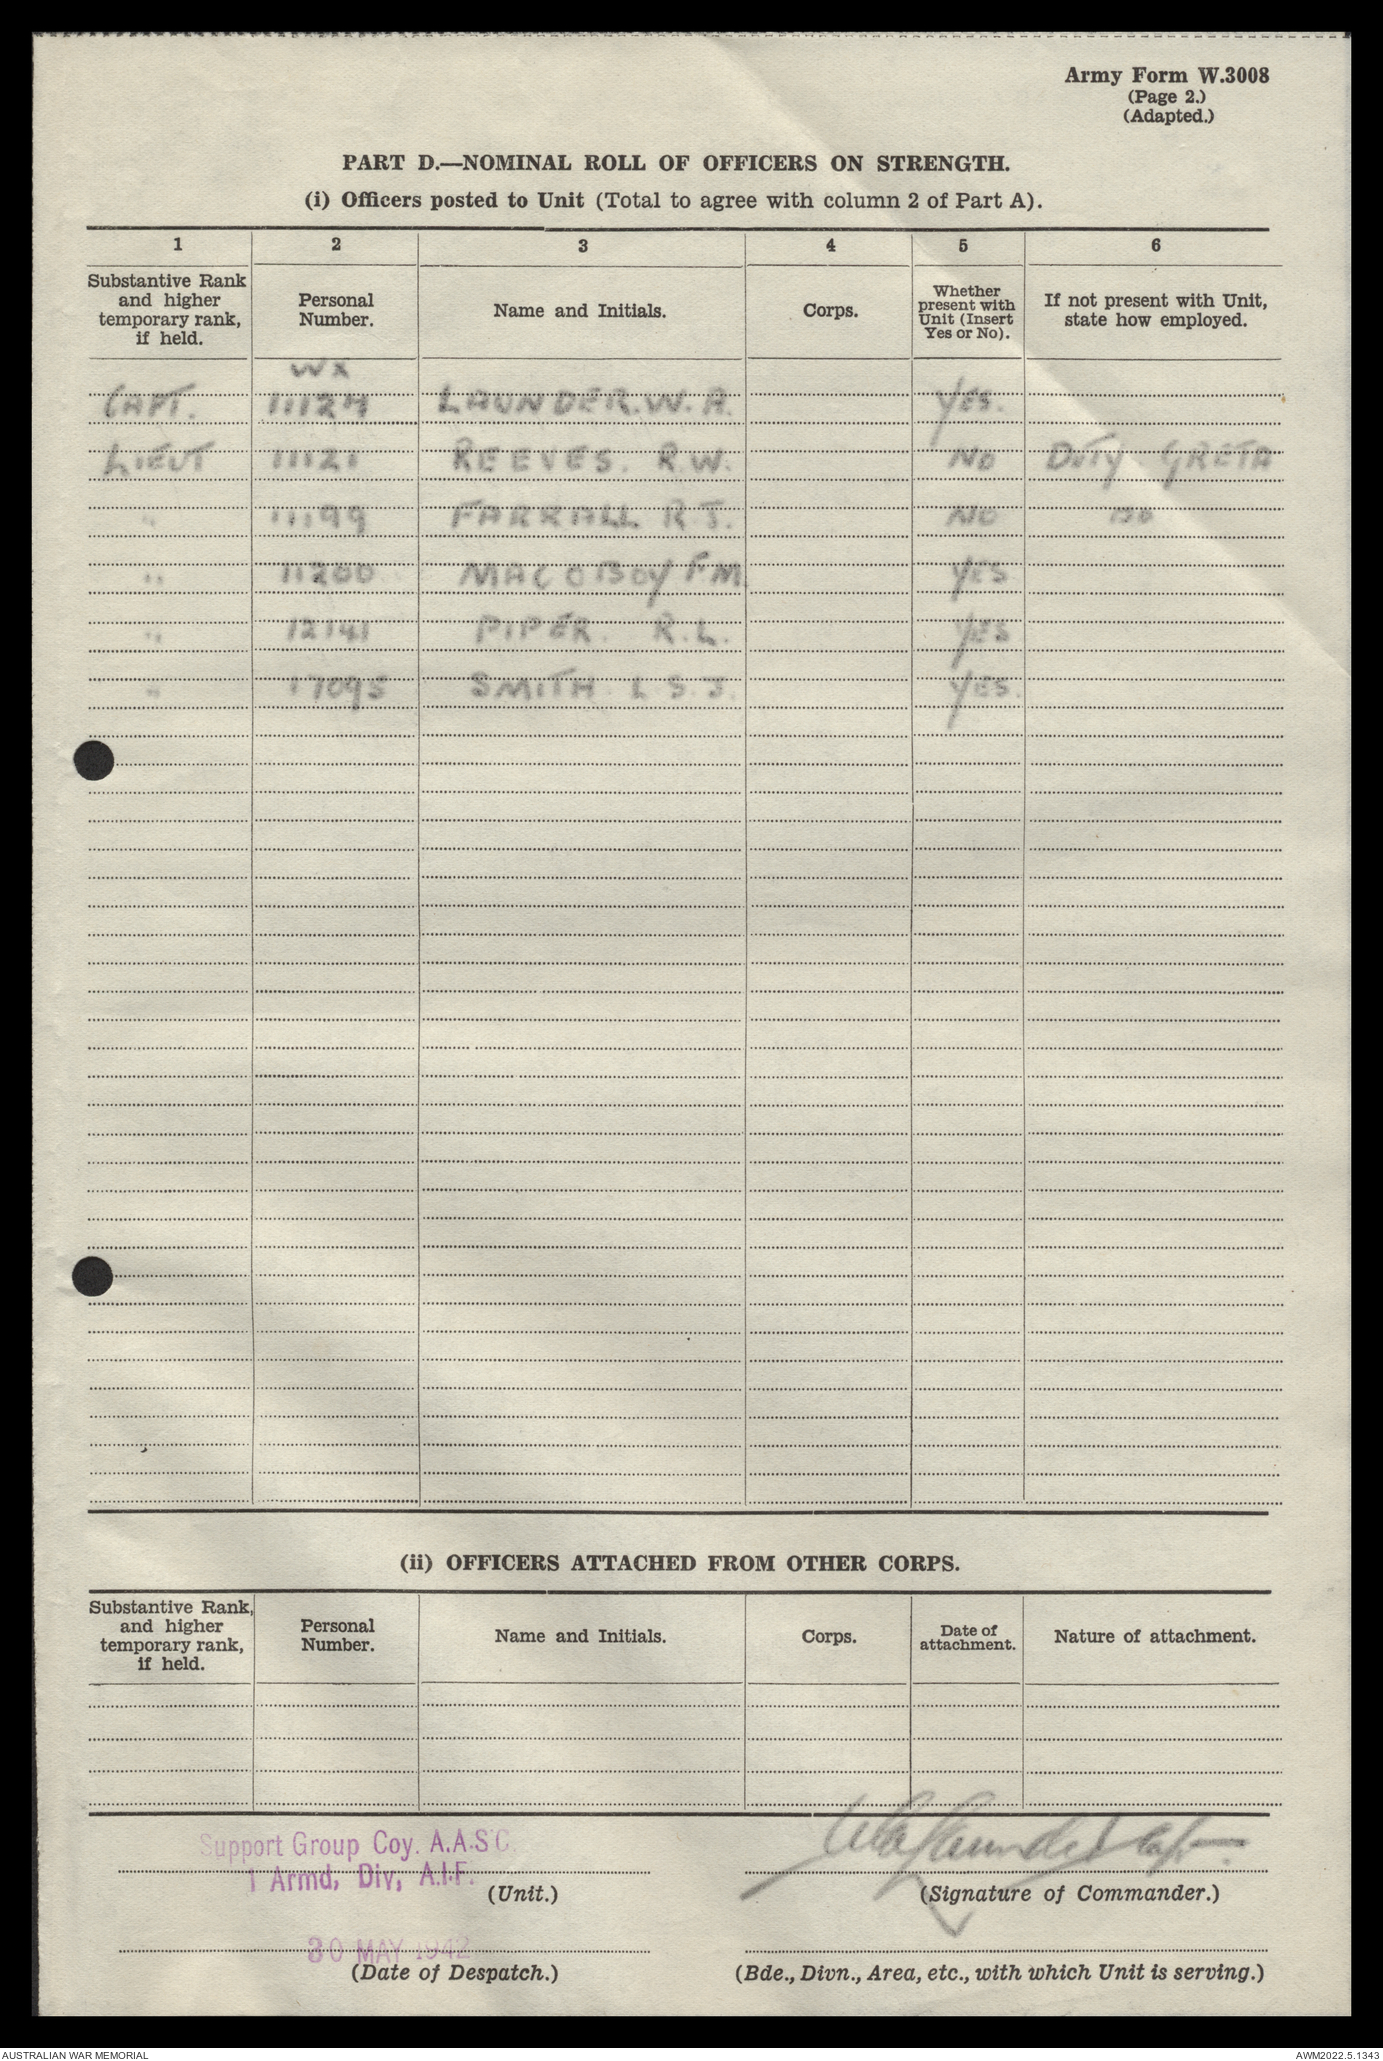 Army Form W.3008
(Page 2.)
(Adapted.)
PART D.—NOMINAL ROLL OF OFFICERS ON STRENGTH.
(i) Officers posted to Unit (Total to agree with column 2 of Part A).
1 2 3 4 5 6
Substantive Rank and higher temporary rank, if held. Personal Number. Name and Initials. Corps. Whether present with Unit (Insert Yes or No). If not present with Unit, state how employed.
WX
CAPT. 11124 LAUNDER. W. A. YES.
LIEUT 11121 REEVES. R.W. NO DUTY GRETA
" 11199 FARRALL R.J. NO DO
" 11200 MACOBOY F.M. YES
" 12141 PIPER. R.L. YES
" 17095 SMITH L.S.J. YES.
(ii) OFFICERS ATTACHED FROM OTHER CORPS.
Substantive Rank, and higher temporary rank, if held. Personal Number. Name and Initials. Corps. Date of attachment. Nature of attachment.
Support Group Coy. A.A.S.C.
1 Armd, Div, A.I.F.
WALaunder Capt.
(Unit.) (Signature of Commander.)
30 MAY 1942
(Date of Despatch.) (Bde., Divn., Area, etc., with which Unit is serving.)
AUSTRALIAN WAR MEMORIAL AWM2022.5.1343